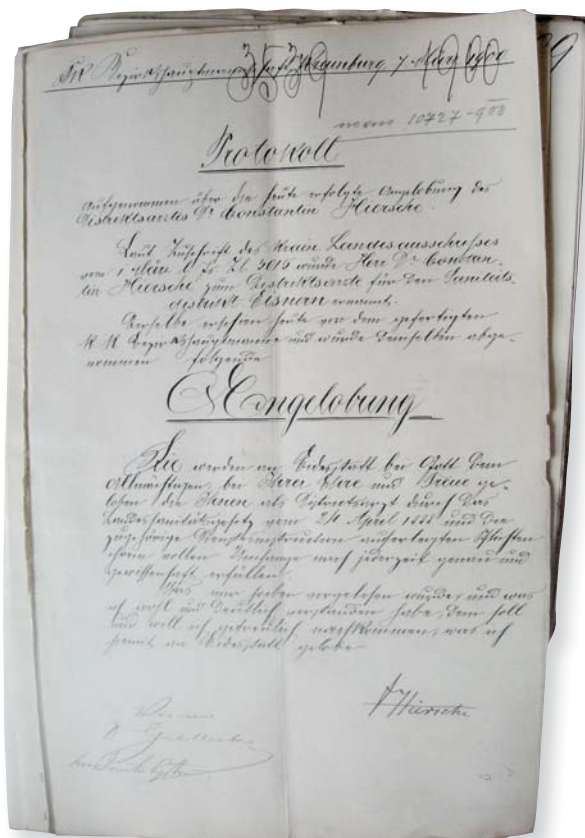 KK Bezirkshauptmannschaft Krainburg, 7. März 1900
3539
10727-900
Protokoll
aufgenommen über die heute erfolgte Angelobung des
Distriktsarztes Dr Constantin Hiersche.
Laut Zuschrift des krain. Landesausschusses
vom 1 März l. Js Zl 3015 wurde Herr Dr Constan-
tin Hiersche zum Distriktsarzte für den Sanitäts-
distrikt Eisnern ernannt.
Derselbe erschien heute vor dem gefertigten
KK Bezirkshauptmanne und wurde demselben abge-
nommen folgende
Angelobung
Sie werden an Eidesstatt bei Gott dem
Allmächtigen, bei Ihrer Ehre und Treue ge-
loben die Ihnen als Distriktsarzt durch das
Landessanitätsgesetz vom 24 April 1888 und die
zugehörige Dienstinstruction auferlegten Pflichten
ihrem vollen Umfange nach jederzeit genau und
gewissenhaft erfüllen.
Was mir soeben vorgelesen wurde, und was
ich wohl und deutlich verstanden habe, dem soll
und will ich getreulich nachkommen, was ich
hiemit an Eidesstatt gelobe
Hiersche